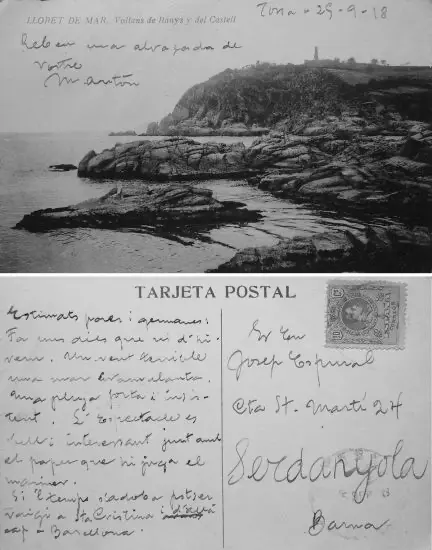 LLORET DE MAR. Voltans de Banys y del Castell
Tossa - 25-9-18
Reben una abraçada de
vostre
M. Antón
TARJETA POSTAL
Estimats pares i germanes:
Fa uns dies que ni d'hi-
vern. Un vent terrible
una mar
una pluja forta i insis-
tent. L'espectacle es
bell i interessant junt amb
el paper que hi juga el
mariner.
Si l'temps s'adoba potser
vaigi a Sta Cristina i d'allà
cap a Barcelona.
Sr En
Josep Espinal
Cta St. Martí 24
Serdanyola
Barna